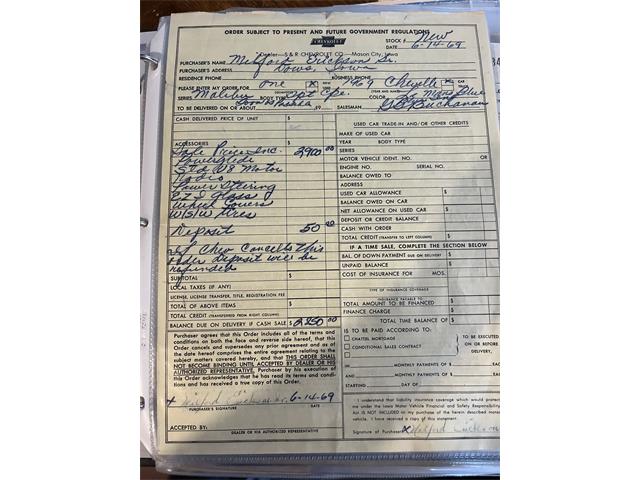 ORDER SUBJECT TO PRESENT AND FUTURE GOVERNMENT REGULATIONS
CHEVROLET
STOCK # New
Dealer— S & R CHEVROLET CO Mason City, Iowa
DATE 6-14-69
PURCHASER'S NAME Milford Erickson Sr.
PURCHASER'S ADDRESS Dows, Iowa
RESIDENCE PHONE BUSINESS PHONE
PLEASE ENTER MY ORDER FOR one X NEW 1969 Chevelle X CAR
SERIES Malibu BODY TYPE Spt Cpe. COLOR Blue
TO BE DELIVERED ON OR ABOUT Soon As Possible 19 SALESMAN Buchanan
CASH DELIVERED PRICE OF UNIT $
USED CAR TRADE-IN AND/OR OTHER CREDITS
MAKE OF USED CAR
YEAR BODY TYPE
ACCESSORIES
Sale Price Inc. 2900 00
SERIES
Powerglide
MOTOR VEHICLE IDENT. NO. OR
Std V8 Motor
ENGINE NO. SERIAL NO.
Radio
BALANCE OWED TO
Power Stering
ADDRESS
E Z I Glass
USED CAR ALLOWANCE $
Wheel Covers
BALANCE OWED ON CAR $
W/S/W Tires
NET ALLOWANCE ON USED CAR $
DEPOSIT OR CREDIT BALANCE $
Deposit 50 00
CASH WITH ORDER $
TOTAL CREDIT (TRANSFER TO LEFT COLUMN) $
If Chev Cancells this
IF A TIME SALE, COMPLETE THE SECTION BELOW
order deposit will be
BAL. OF DOWN PAYMENT DUE ON DELIVERY $
refunded
UNPAID BALANCE $
SUBTOTAL $
COST OF INSURANCE FOR MOS.
LOCAL TAXES (IF ANY)
TYPE OF INSURANCE COVERAGE
LICENSE, LICENSE TRANSFER, TITLE, REGISTRATION FEE
INSURANCE PAYABLE TO
TOTAL OF ABOVE ITEMS $
TOTAL AMOUNT TO BE FINANCED $
TOTAL CREDIT (TRANSFERRED FROM RIGHT COLUMN)
FINANCE CHARGE $
BALANCE DUE ON DELIVERY IF CASH SALE $ 2850 00
TOTAL TIME BALANCE OF $
Purchaser agrees that this Order includes all of the terms and
IS TO BE PAID ACCORDING TO:
conditions on both the face and reverse side hereof, that this
CHATTEL MORTGAGE
TO BE EXECUTED
Order cancels and supersedes any prior agreement and as of
CONDITIONAL SALES CONTRACT
ON OR BEFORE
the date hereof comprises the entire agreement relating to the
DELIVERY,
subject matters covered hereby, and that THIS ORDER SHALL
NOT BECOME BINDING UNTIL ACCEPTED BY DEALER OR HIS
MONTHLY PAYMENTS OF $ EACH
AUTHORIZED REPRESENTATIVE. Purchaser by his execution of
this Order acknowledges that he has read its terms and condi-
MONTHLY PAYMENTS OF $ EACH
tions and has received a true copy of this Order.
STARTING FROM DATE
x Milford Erickson Sr. 6-14-69
PURCHASER'S SIGNATURE DATE
I understand that liability insurance coverage which would protect
under the Iowa Motor Vehicle Financial and Safety Responsibility
Act IS NOT INCLUDED in my purchase of the herein described motor
vehicle. I have received a copy of this statement.
ACCEPTED BY:
DEALER OR HIS AUTHORIZED REPRESENTATIVE
Signature of Purchaser X Milford Erickson